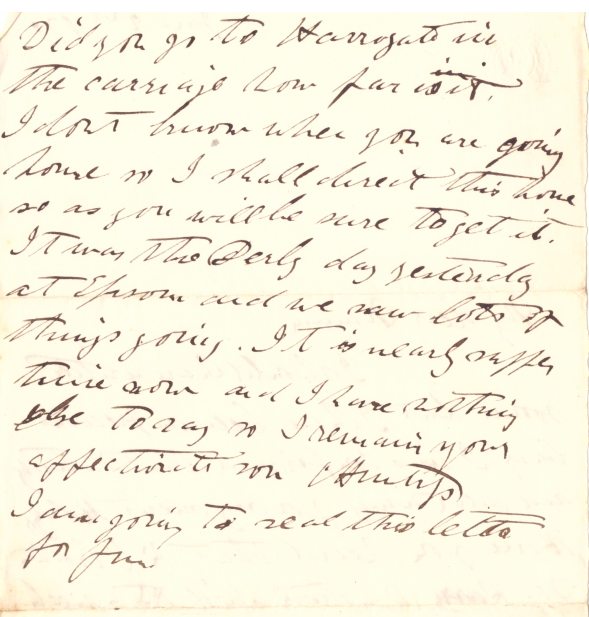 Did you go to Harrogate in
the carriage how far is it.
I dont know when you are going
home so I shall direct this home
so as you will be sure to get it.
It was the Derby day yesterday
at Epsom and we saw lots of
things going. It is nearly supper
time now and I have nothing
else to say so I remain your
affectionate son
I am going to seal this letter
for fun